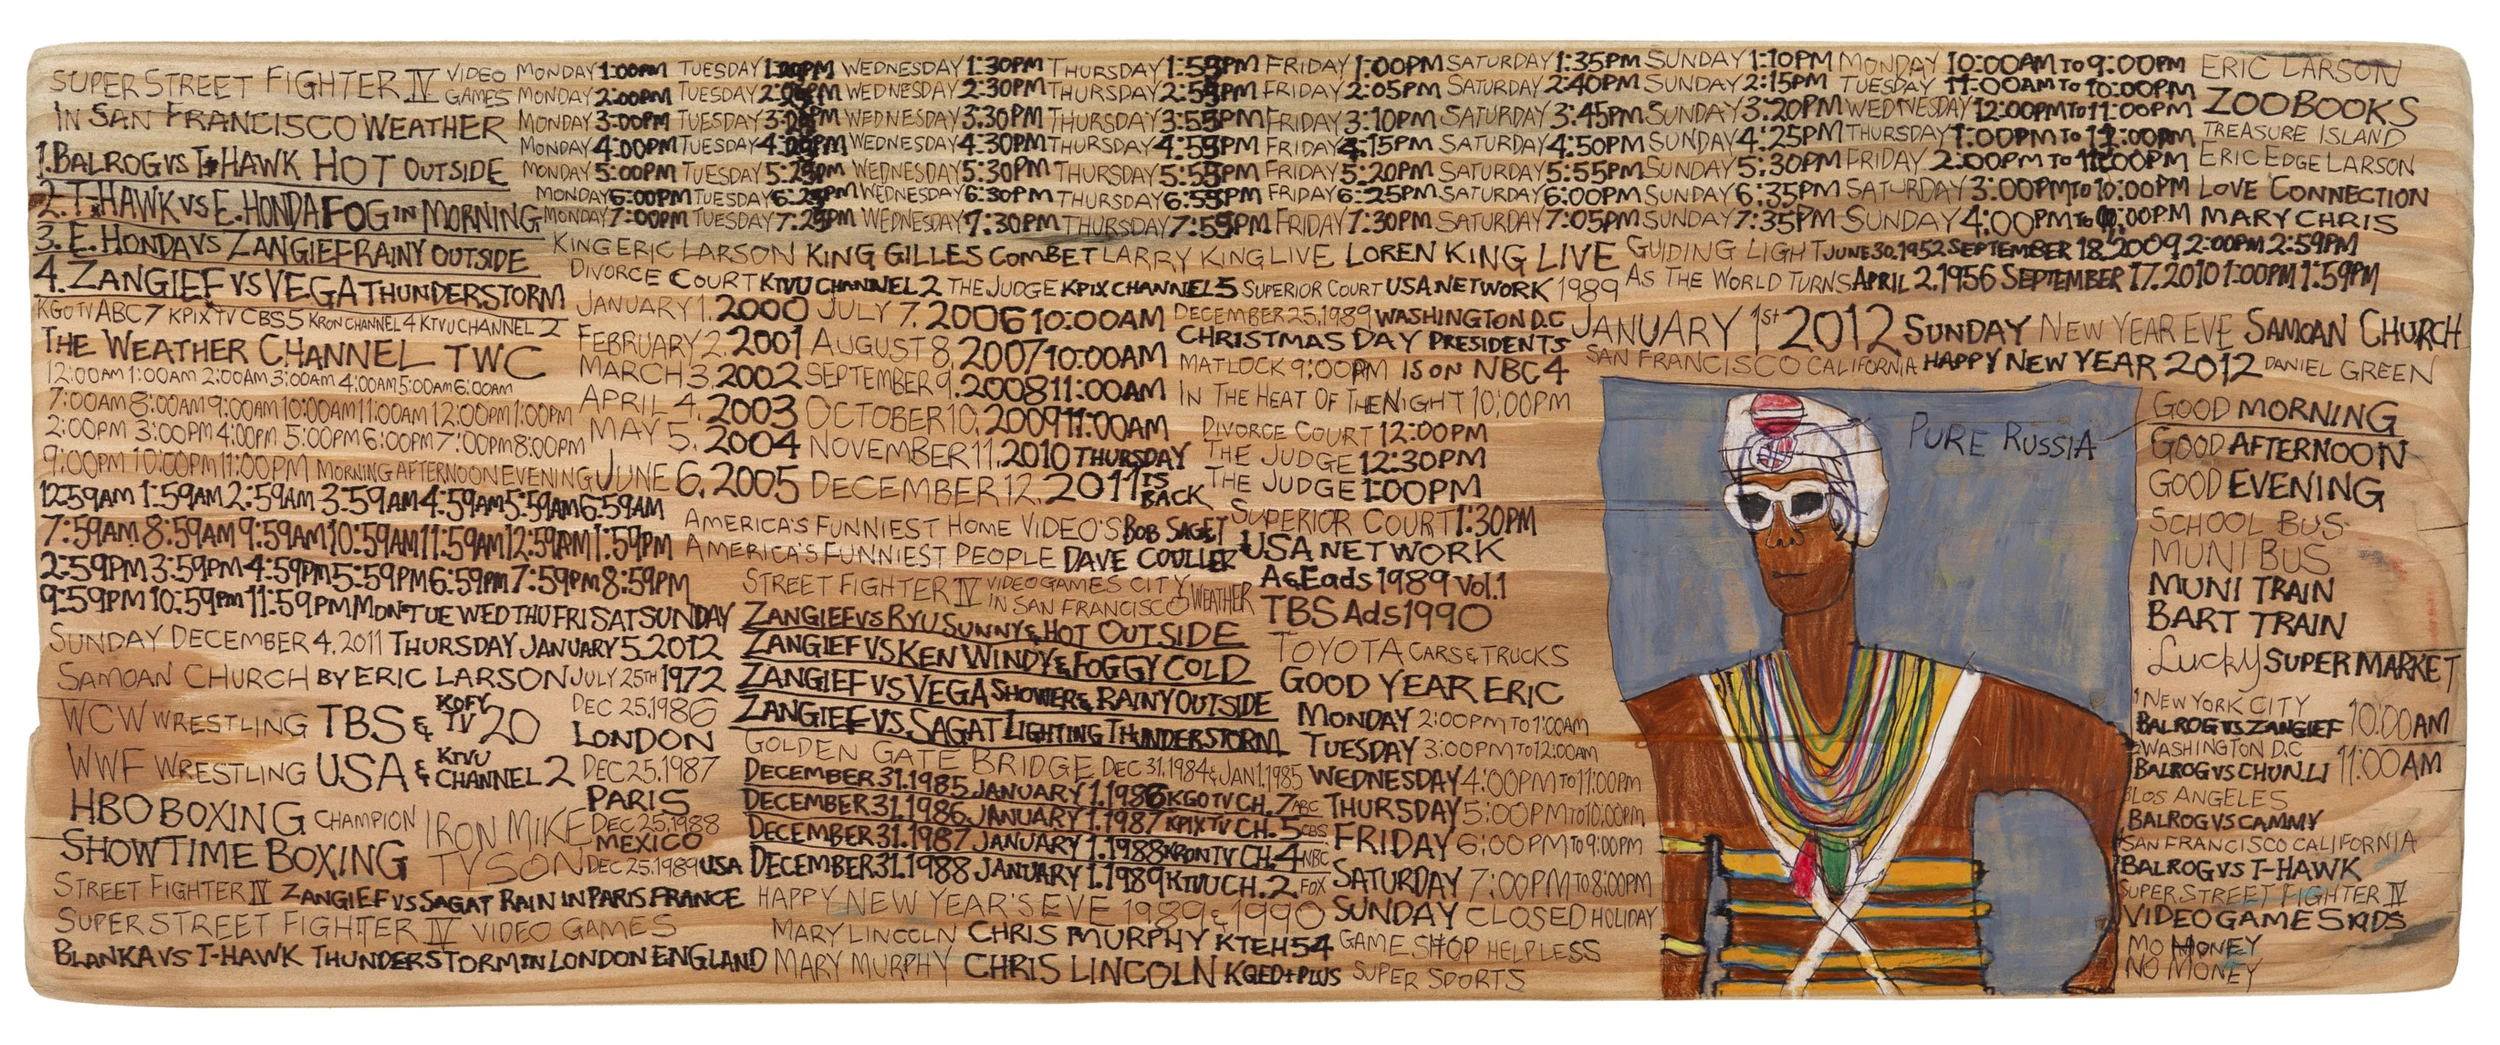 SUPER STREET FIGHTER IV VIDEO GAMES
IN SAN FRANCISCO WEATHER
1. BALROG VS T-HAWK HOT OUTSIDE
2. T-HAWK VS E. HONDA FOG IN MORNING
3. E. HONDA VS ZANGIEF RAINY OUTSIDE
4. ZANGIEF VS VEGA THUNDERSTORM
KGO TV ABC 7 KPIX TV CBS 5 KRON CHANNEL 4 KTVU CHANNEL 2
THE WEATHER CHANNEL TWC
12:00AM 1:00AM 2:00AM 3:00AM 4:00AM 5:00AM 6:00AM
7:00AM 8:00AM 9:00AM 10:00AM 11:00AM 12:00PM 1:00PM
2:00PM 3:00PM 4:00PM 5:00PM 6:00PM 7:00PM 8:00PM
9:00PM 10:00PM 11:00PM MORNING AFTERNOON EVENING
12:59AM 1:59AM 2:59AM 3:59AM 4:59AM 5:59AM 6:59AM
7:59AM 8:59AM 9:59AM 10:59AM 11:59AM 12:59PM 1:59PM
2:59PM 3:59PM 4:59PM 5:59PM 6:59PM 7:59PM 8:59PM
9:59PM 10:59PM 11:59PM MON TUE WED THU FRI SAT SUNDAY
SUNDAY DECEMBER 4, 2011 THURSDAY JANUARY 5, 2012
SAMOAN CHURCH BY ERIC LARSON JULY 25TH 1972
WCW WRESTLING TBS & KOFY TV 20
WWF WRESTLING USA & KTVU CHANNEL 2
HBO BOXING CHAMPION IRON MIKE
SHOWTIME BOXING TYSON
DEC 25, 1986
LONDON
DEC 25, 1987
PARIS
DEC 25, 1988
MEXICO
DEC 25, 1989 USA
STREET FIGHTER IV ZANGIEF VS SAGAT RAIN IN PARIS FRANCE
SUPER STREET FIGHTER IV VIDEO GAMES
BLANKA VS T-HAWK THUNDERSTORM IN LONDON ENGLAND
MONDAY 1:00AM TUESDAY WEDNESDAY 1:30PM THURSDAY 1:59PM FRIDAY 1:00PM SATURDAY 1:35PM SUNDAY 1:10PM MONDAY 10:00AM TO 9:00PM
MONDAY 2:00PM TUESDAY WEDNESDAY 2:30PM THURSDAY 2:59PM FRIDAY 2:05PM SATURDAY 2:40PM SUNDAY 2:15PM TUESDAY 11:00AM TO 10:00PM
MONDAY 3:00PM TUESDAY WEDNESDAY 3:30PM THURSDAY 3:59PM FRIDAY 3:10PM SATURDAY 3:45PM SUNDAY 3:20PM WEDNESDAY 12:00PM TO 11:00PM
MONDAY 4:00PM TUESDAY WEDNESDAY 4:30PM THURSDAY 4:59PM FRIDAY 4:15PM SATURDAY 4:50PM SUNDAY 4:25PM THURSDAY 1:00PM TO
MONDAY 5:00PM TUESDAY 5:29PM WEDNESDAY 5:30PM THURSDAY 5:59PM FRIDAY 5:20PM SATURDAY 5:55PM SUNDAY 5:30PM FRIDAY 2:00PM TO
MONDAY 6:00PM TUESDAY 6:29PM WEDNESDAY 6:30PM THURSDAY 6:59PM FRIDAY 6:25PM SATURDAY 6:00PM SUNDAY 6:35PM SATURDAY 3:00PM TO 10:00PM
MONDAY 7:00PM TUESDAY 7:29PM WEDNESDAY 7:30PM THURSDAY 7:59PM FRIDAY 7:30PM SATURDAY 7:05PM SUNDAY 7:35PM SUNDAY 4:00PM TO
ERIC LARSON
ZOOBOOKS
TREASURE ISLAND
ERIC EDGE LARSON
LOVE CONNECTION
MARY CHRIS
KING ERIC LARSON KING GILLES COMBET LARRY KING LIVE LOREN KING LIVE GUIDING LIGHT JUNE 30, 1952 SEPTEMBER 18, 2009 2:00PM 2:59PM
DIVORCE COURT KTVU CHANNEL 2 THE JUDGE KPIX CHANNEL 5 SUPERIOR COURT USA NETWORK 1989 AS THE WORLD TURNS APRIL 2, 1956 SEPTEMBER 17, 2010 1:00PM 1:59PM
JANUARY 1, 2000 JULY 7, 2006 10:00AM
FEBRUARY 2, 2001 AUGUST 8, 2007 10:00AM
MARCH 3, 2002 SEPTEMBER 9, 2008 11:00AM
APRIL 4, 2003 OCTOBER 10, 2009 11:00AM
MAY 5, 2004 NOVEMBER 11, 2010 THURSDAY
JUNE 6, 2005 DECEMBER 12, 2011 IS BACK
DECEMBER 25, 1989 WASHINGTON D.C
CHRISTMAS DAY PRESIDENTS
MATLOCK 9:00PM IS ON NBC 4
IN THE HEAT OF THE NIGHT 10:00PM
DIVORCE COURT 12:00PM
THE JUDGE 12:30PM
THE JUDGE 1:00PM
SUPERIOR COURT 1:30PM
USA NETWORK
A&E ads 1989 Vol. 1
TBS Ads 1990
AMERICA'S FUNNIEST HOME VIDEO'S BOB SAGET
AMERICA'S FUNNIEST PEOPLE DAVE COULIER
STREET FIGHTER IV VIDEO GAMES CITY
IN SAN FRANCISCO WEATHER
ZANGIEF VS RYU SUNNY & HOT OUTSIDE
ZANGIEF VS KEN WINDY & FOGGY COLD
ZANGIEF VS VEGA SHOWER & RAINY OUTSIDE
ZANGIEF VS. SAGAT LIGHTING THUNDERSTORM
GOLDEN GATE BRIDGE DEC 31, 1984 & JAN 1, 1985
DECEMBER 31, 1985 JANUARY 1, 1986 KGO TV CH. 7 ABC
DECEMBER 31, 1986 JANUARY 1, 1987 KPIX TV CH. 5 CBS
DECEMBER 31, 1987 JANUARY 1, 1988 KRON TV CH. 4 NBC
DECEMBER 31, 1988 JANUARY 1, 1989 KTVU CH. 2 FOX
HAPPY NEW YEAR'S EVE 1989 & 1990
MARY LINCOLN CHRIS MURPHY KTEH 54
MARY MURPHY CHRIS LINCOLN KQED+PLUS
TOYOTA CARS & TRUCKS
GOOD YEAR ERIC
MONDAY 2:00PM TO 1:00AM
TUESDAY 3:00PM TO 12:00AM
WEDNESDAY 4:00PM TO 11:00PM
THURSDAY 5:00PM TO 10:00PM
FRIDAY 6:00PM TO 9:00PM
SATURDAY 7:00PM TO 8:00PM
SUNDAY CLOSED HOLIDAY
GAME SHOP HELPLESS
SUPER SPORTS
JANUARY 1st 2012 SUNDAY NEW YEAR EVE SAMOAN CHURCH
SAN FRANCISCO CALIFORNIA HAPPY NEW YEAR 2012 DANIEL GREEN
PURE RUSSIA
GOOD MORNING
GOOD AFTERNOON
GOOD EVENING
SCHOOL BUS
MUNI BUS
MUNI TRAIN
BART TRAIN
Lucky SUPER MARKET
1 NEW YORK CITY
BALROG VS ZANGIEF 10:00AM
2 WASHINGTON D.C
BALROG VS CHUN.LI 11:00AM
3 LOS ANGELES
BALROG VS CAMMY
4 SAN FRANCISCO CALIFORNIA
BALROG VS T-HAWK
SUPER STREET FIGHTER IV
VIDEO GAMES KIDS
MO MONEY
NO MONEY